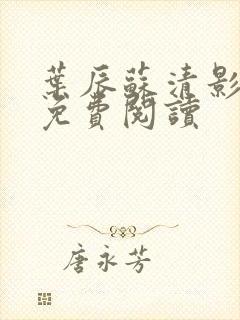 葉辰蘇清影
免費閱讀
唐永芳